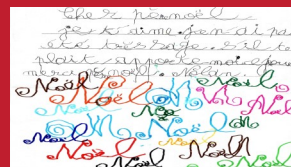 Cher père noël
je t'aime j'en ai pas
été très sage. s'il te
plait apporte moi
merci père noël. Nolan.
Noël Noël
Noël N Noël
Noël
Noël N Noël N
Noël Noël
Noël Noël